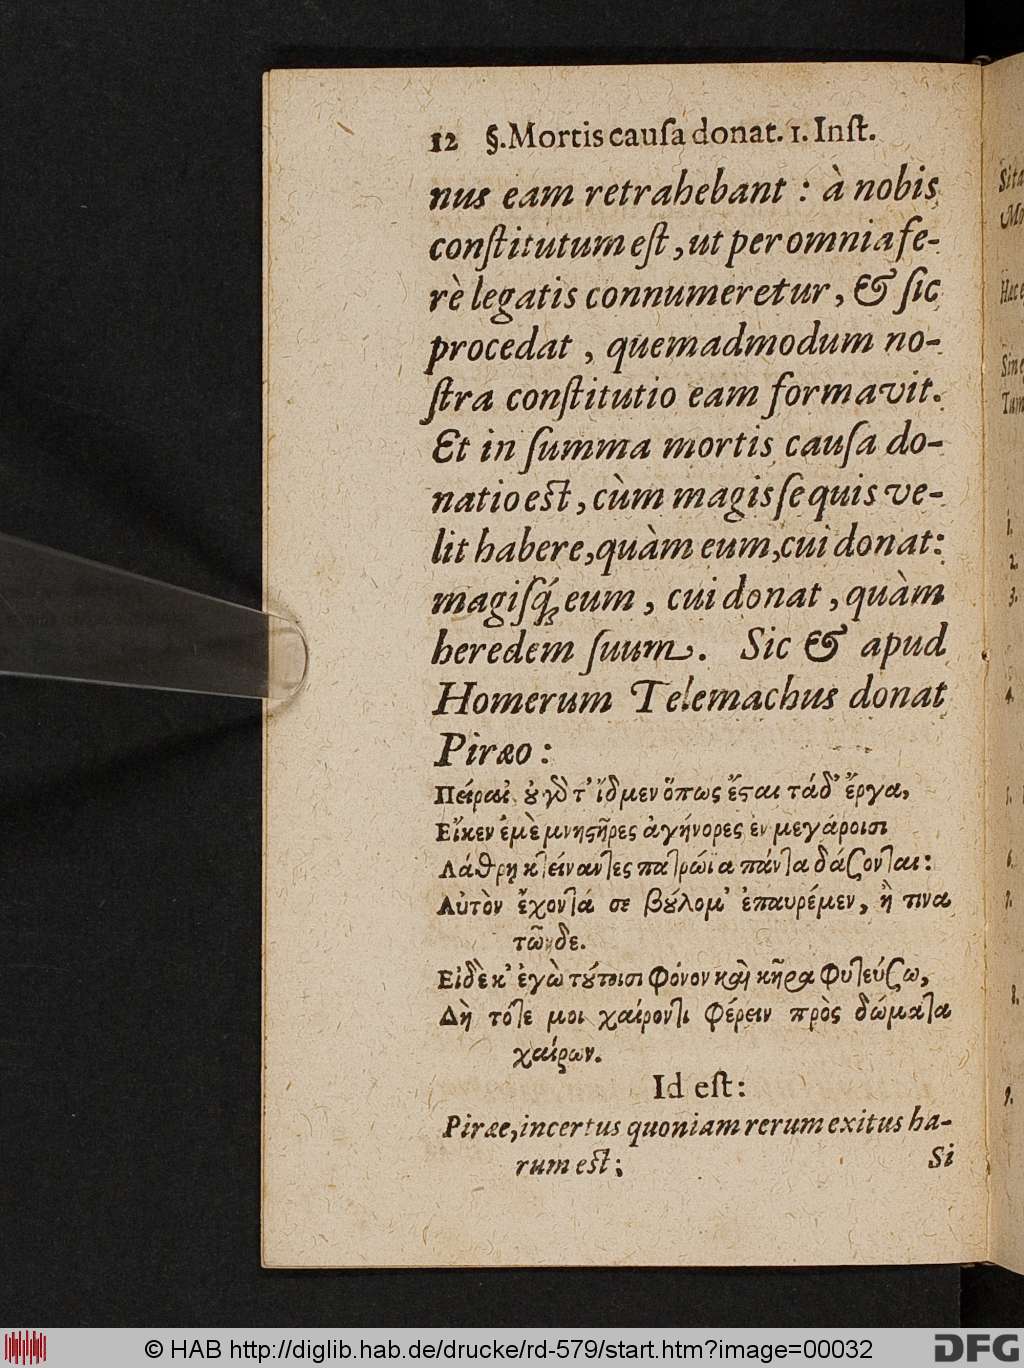 12 §. Mortis cauſa donat. 1. Inſt.
nus eam retrahebant : à nobis
conſtitutum eſt, ut per omnia fe-
rè legatis connumeretur, & ſic
procedat, quemadmodum no-
ſtra conſtitutio eam formavit.
Et in ſumma mortis cauſa do-
natio eſt, cùm magis ſe quis ve-
lit habere, quàm eum, cui donat:
magiſq́; eum, cui donat, quàm
heredem ſuum. Sic & apud
Homerum Telemachus donat
Piræo:
Πείραι', ȣ γδ τ' ἴδμεν ὅπως ἔςαι τάδ' ἔργα,
Εἴκεν ἐμὲ μνηςῆρες ἀγήνορες ἐν μεγάροισι
Λάθρη κτείναντες πατρώϊα πάντα δάσονται:
Αὐτὸν ἔχοντά σε βȣ́λομ' ἐπαυρέμεν, ἢ τινα
τῶνδε.
Εἰ δὲ κ' ἐγὼ τȣ́τοισι φόνον καὶ κῆρα φυτεύσω,
Δὴ τότε μοι χαίροντι φέρειν πρὸς δώματα
χαίρων.
Id eſt:
Piræe, incertus quoniam rerum exitus ha-
rum eſt;
Si
Sita
Mo
Hac e
Sine
Tum
1.
2.
3.
4.
6.
8.
9.
© HAB http://diglib.hab.de/drucke/rd-579/start.htm?image=00032
DFG